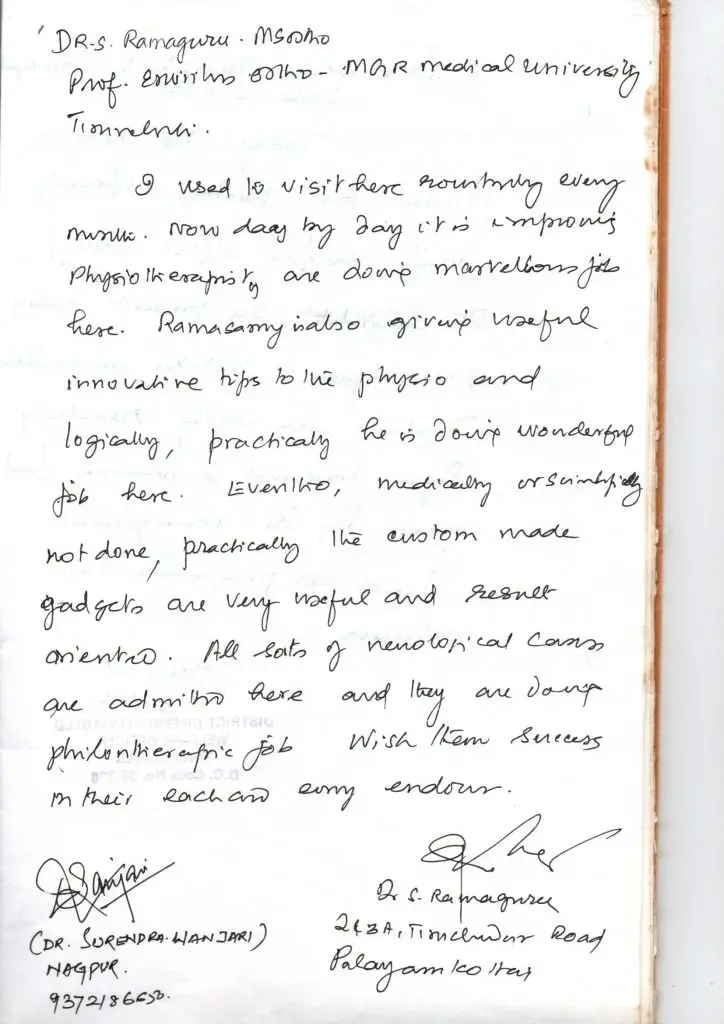 DR-S. Ramaguru. MSortho
Prof. Emiritus ortho - MGR medical University
Tirunelveli.
I used to visit here routinely every
month. Now day by day it is improving
Physiotherapists are doing marvellous job
here. Ramasamy is also giving useful
innovative tips to the physio and
logically, practically he is doing wonderful
job here. Eventho, medically or scientifically
not done, practically the custom made
gadgets are very useful and result
oriented. All sots of neurological cases
are admitted here and they are doing
philontherapic job Wish them success
in their each and every endour.
Sanjari
(DR. SURENDRA. WANJARI)
NAGPUR.
Dr S. Ramaguru
Road
Palayamkottai
DISTRICT DIFFERENTLY ABLED